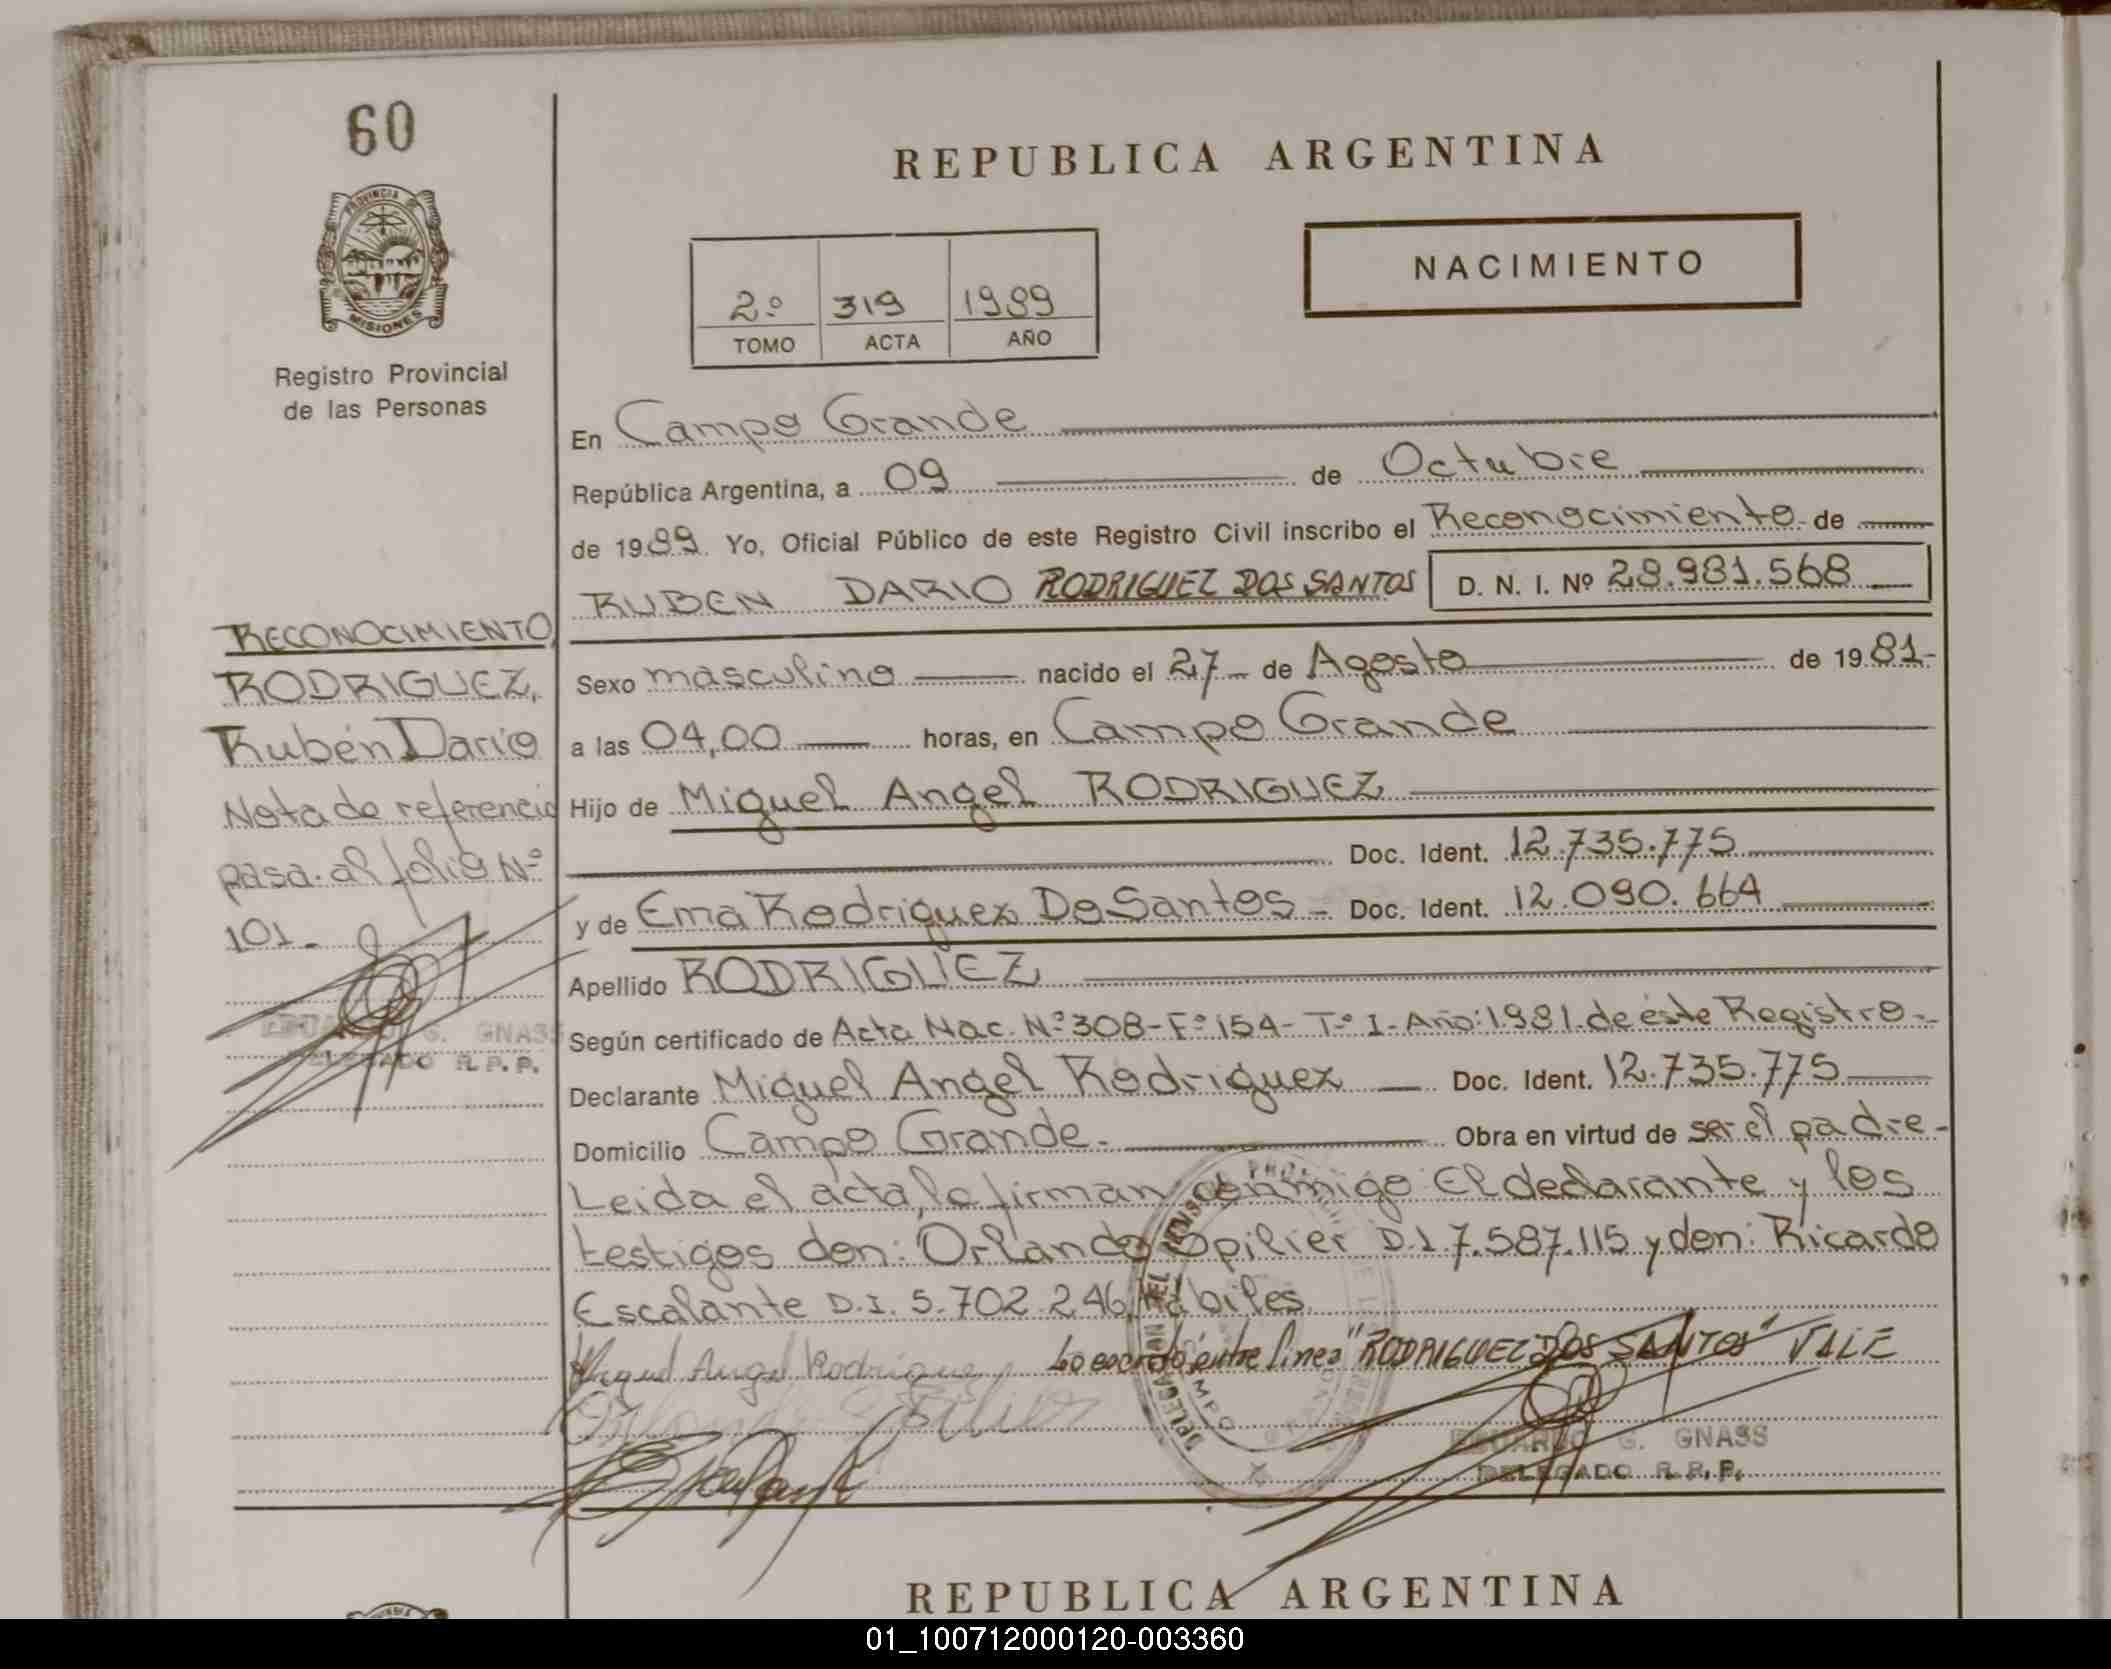 60
REPUBLICA ARGENTINA
PROVINCIA DE
MISIONES
NACIMIENTO
2º 319 1989
TOMO ACTA AÑO
Registro Provincial
de las Personas
En Campo Grande
República Argentina, a 09 de Octubre
de 1989. Yo, Oficial Público de este Registro Civil inscribo el Reconocimiento de
RUBEN DARIO RODRIGUEZ DOS SANTOS D. N. I. Nº 28.981.568
RECONOCIMIENTO
RODRIGUEZ,
Rubén Darío
Nota de referencia
pasa al folio Nº
101.-
EDUARDO G. GNASS
DELEGADO R. P. P.
Sexo masculino nacido el 27 - de Agosto de 1981-
a las 04,00 horas, en Campo Grande
Hijo de Miguel Angel RODRIGUEZ
Doc. Ident. 12.735.775
y de Ema Rodriguez Do Santos - Doc. Ident. 12.090.664
Apellido RODRIGUEZ
Según certificado de Acta Nac. Nº 308- Fº 154- Tº I- Año: 1981. de éste Registro.-
Declarante Miguel Angel Rodriguez Doc. Ident. 12.735.775
Domicilio Campo Grande.- Obra en virtud de ser el padre-
Leida el acta, la firman conmigo El declarante y los
testigos don: Orlando Spilier D.I 7.587.115 y don: Ricardo
Escalante D.I. 5.702.246, Hábiles.
Miguel Angel Rodriguez Lo escrito entre linea "RODRIGUEZ DOS SANTOS" VALE
EDUARDO G. GNASS
DELEGADO R. P. P.
REPUBLICA ARGENTINA
01_100712000120-003360